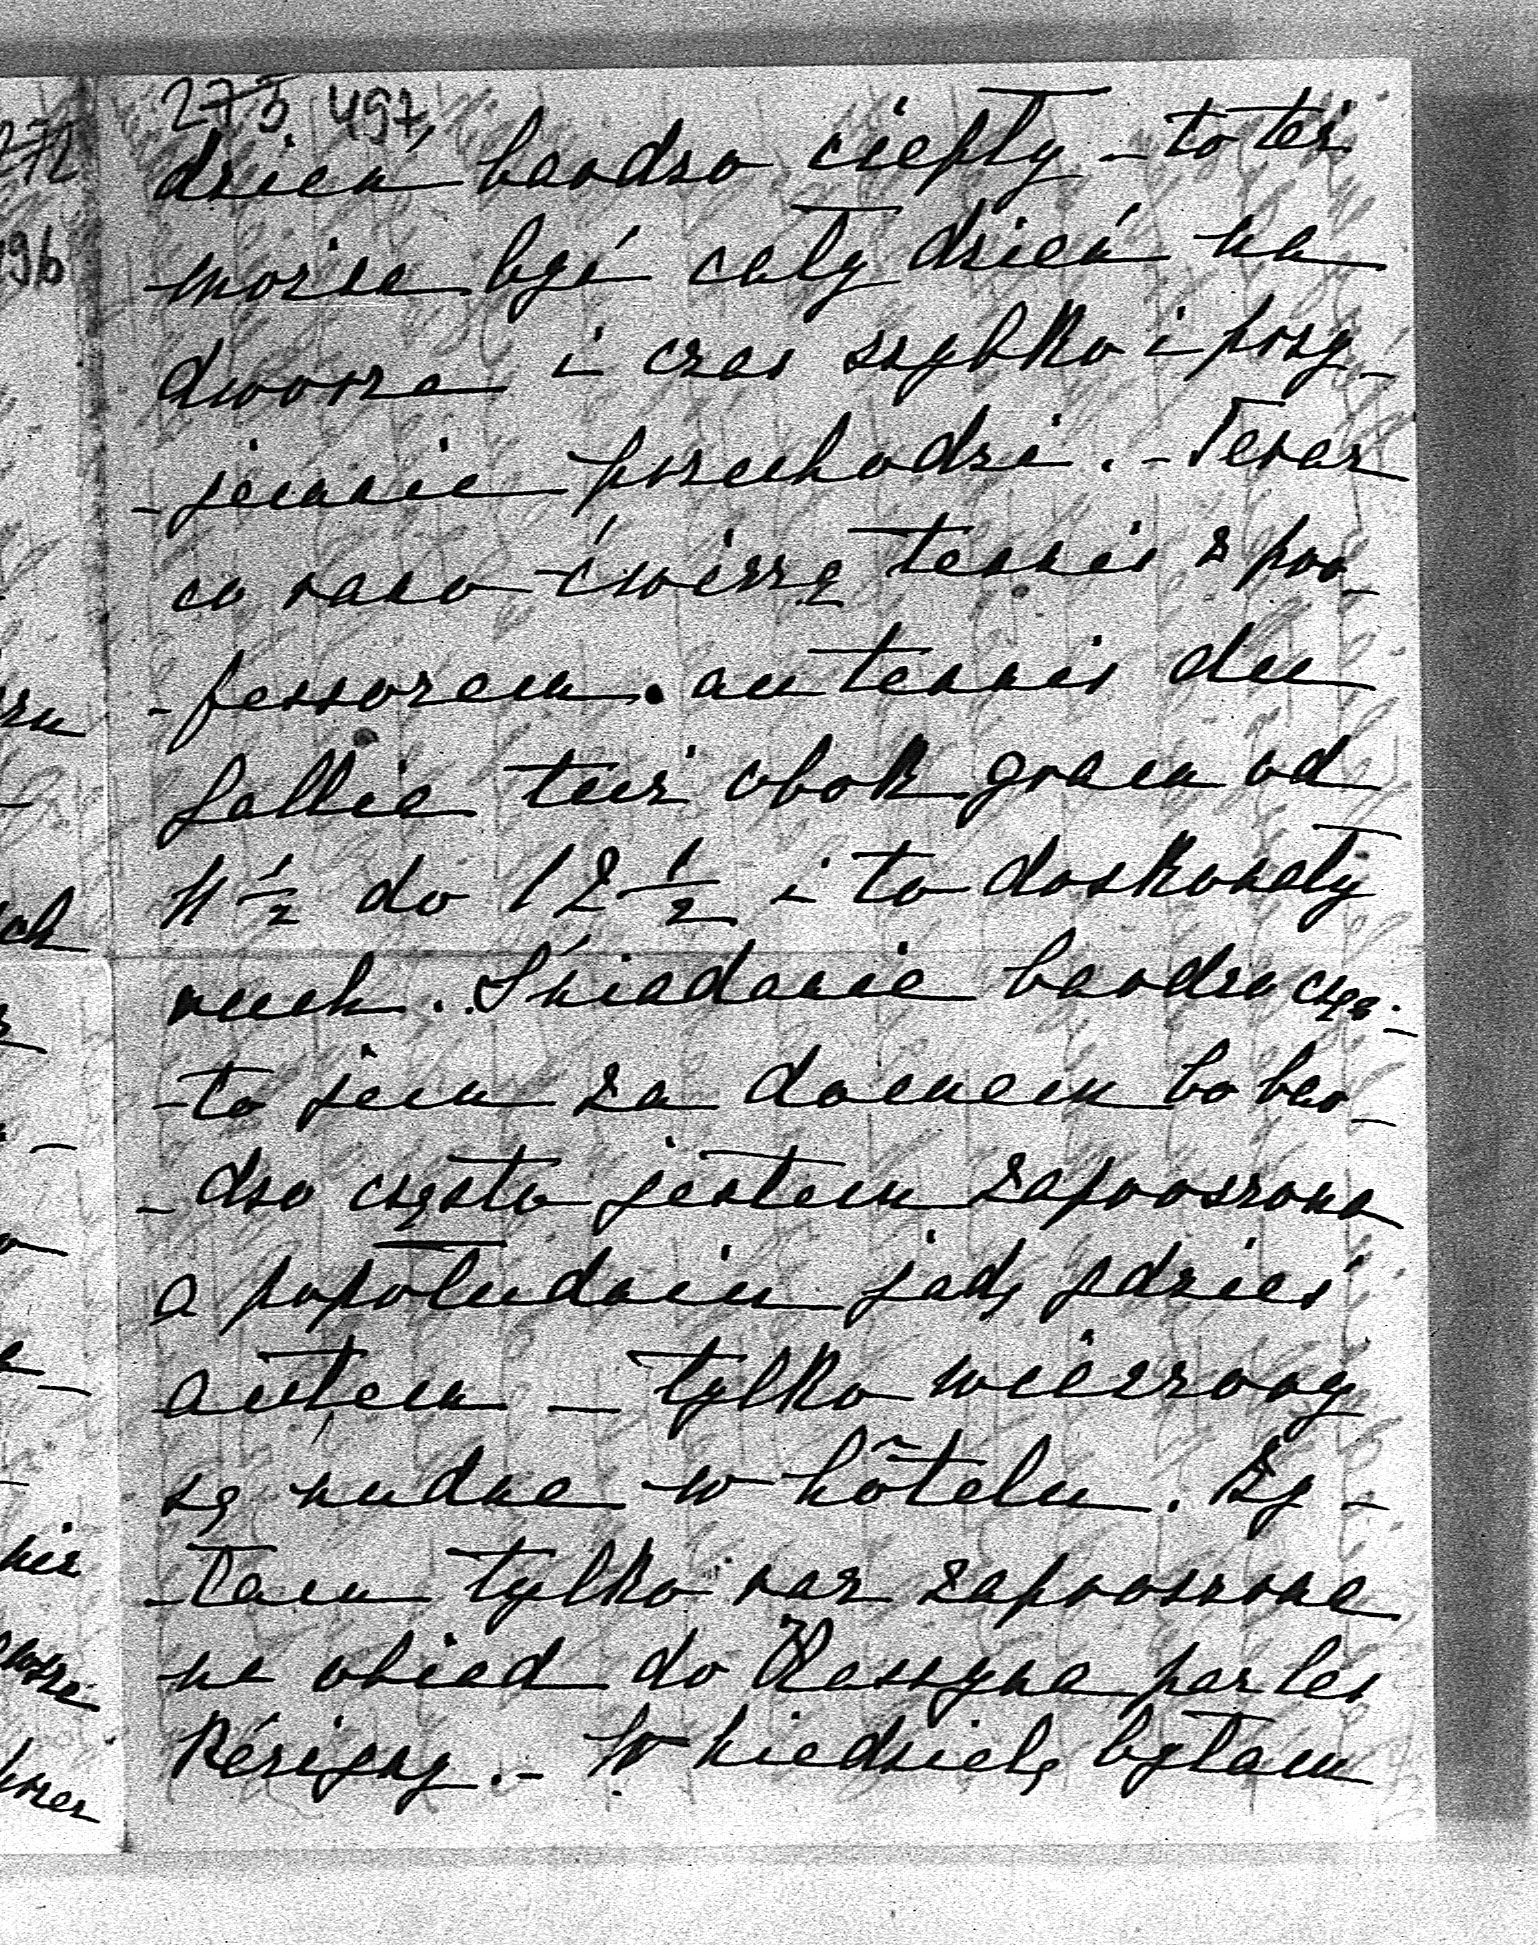 275 497
dzień bardzo ciepły – to też
można być cały dzień na
dworze i czas szybko i przy-
-jemnie przechodzi. – Teraz
co rano ćwiczę tennis z pro-
-fessorem. au tennis du
Sallie tuż obok gram od
11 1/2 do 12 1/2 i to doskonały
ruch. Śniadanie bardzo częs-
-to jem za domem bo bar-
-dzo często jestem zaproszona
a popołudniu jadę gdzieś
autem – tylko wieczory
są nudne w hôtelu. By-
-łam tylko raz zaproszona
na obiad do Kassyna par les
Périgny. – W niedzielę byłam
272
496